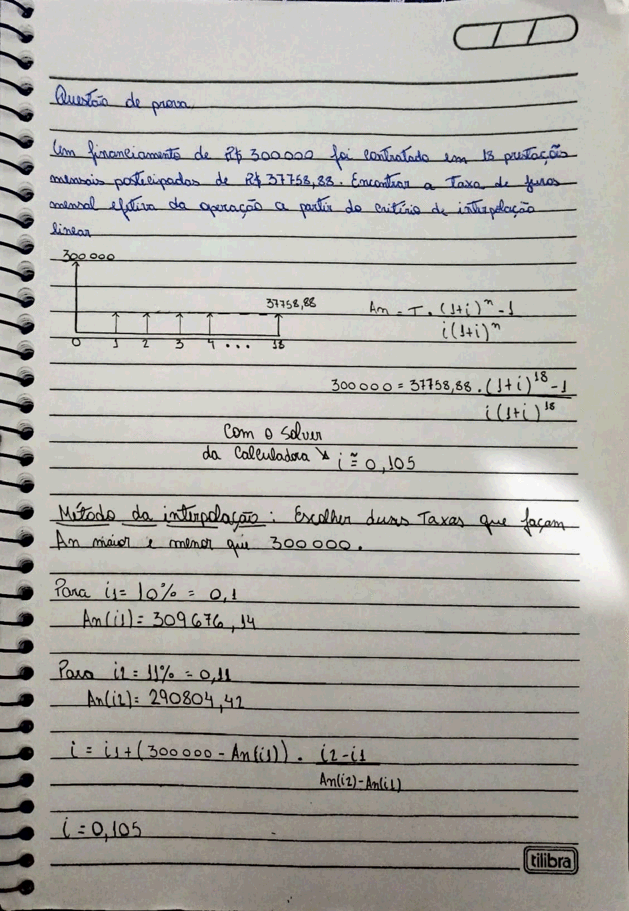 Questão de prova
Um financiamento de R$ 300000 foi contratado em 18 prestações
mensais postecipadas de R$ 37758,88. Encontrar a Taxa de juros
mensal efetiva da operação a partir do critério de interpolação
linear
300 000
37758,88
An = T . (1+i)^n - 1
i(1+i)^n
0 1 2 3 4 ... 18
300 000 = 37758,88 . (1+i)^18 - 1
i(1+i)^18
Com o solver
da calculadora ↘ i ≅ 0,105
Método da interpolação: Escolher duas Taxas que façam
An maior e menor que 300 000.
Para i1 = 10% = 0,1
An(i1) = 309676,14
Para i2 = 11% = 0,11
An(i2) = 290804,42
i = i1 + (300 000 - An(i1)) . i2-i1
An(i2)-An(i1)
i = 0,105
tilibra